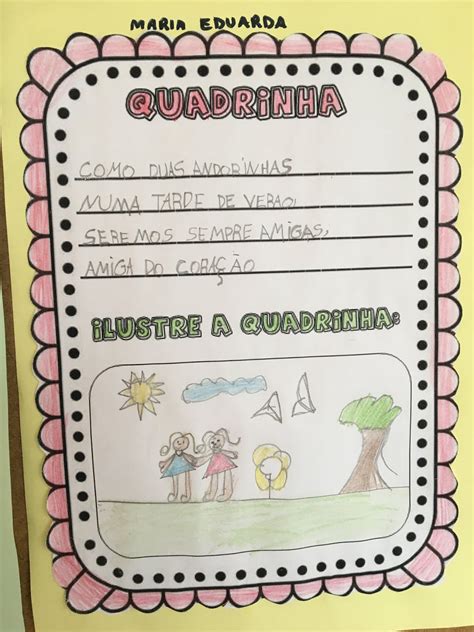 MARIA EDUARDA
QUADRINHA
COMO DUAS ANDORINHAS
NUMA TARDE DE VERAO,
SEREMOS SEMPRE AMIGAS,
AMIGA DO CORAÇÃO
ILUSTRE A QUADRINHA: